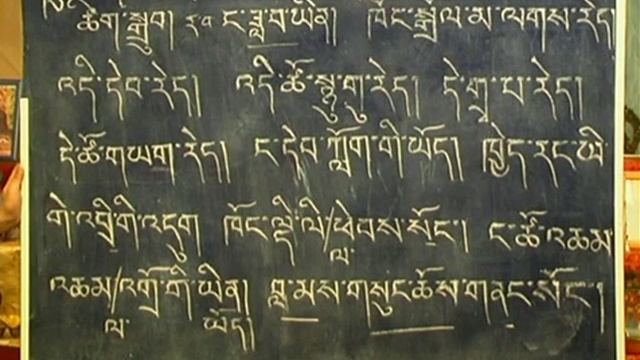 ཚིག་སྒྲུབ། ༢༠ ང་ཟླ་བ་ཡིན། ཁོང་སྒྲོལ་མ་ལགས་རེད།
འདི་དེབ་རེད། འདི་ཚོ་སྨྱུ་གུ་རེད། དེ་གྲྭ་པ་རེད།
དེ་ཚོ་གཡག་རེད། ང་དེབ་ཀློག་གི་ཡོད། ཁྱེད་རང་ཡི་
གེ་འབྲི་གི་འདུག ཁོང་ལྡི་ལི་/ཕེབས་སོང་། ང་ཚོ་འཆམ་
ལ་
འཆམ/འགྲོ་གི་ཡིན། བླ་མས་གསུང་ཆོས་གནང་སོང་།
ལ་ ཡོད།